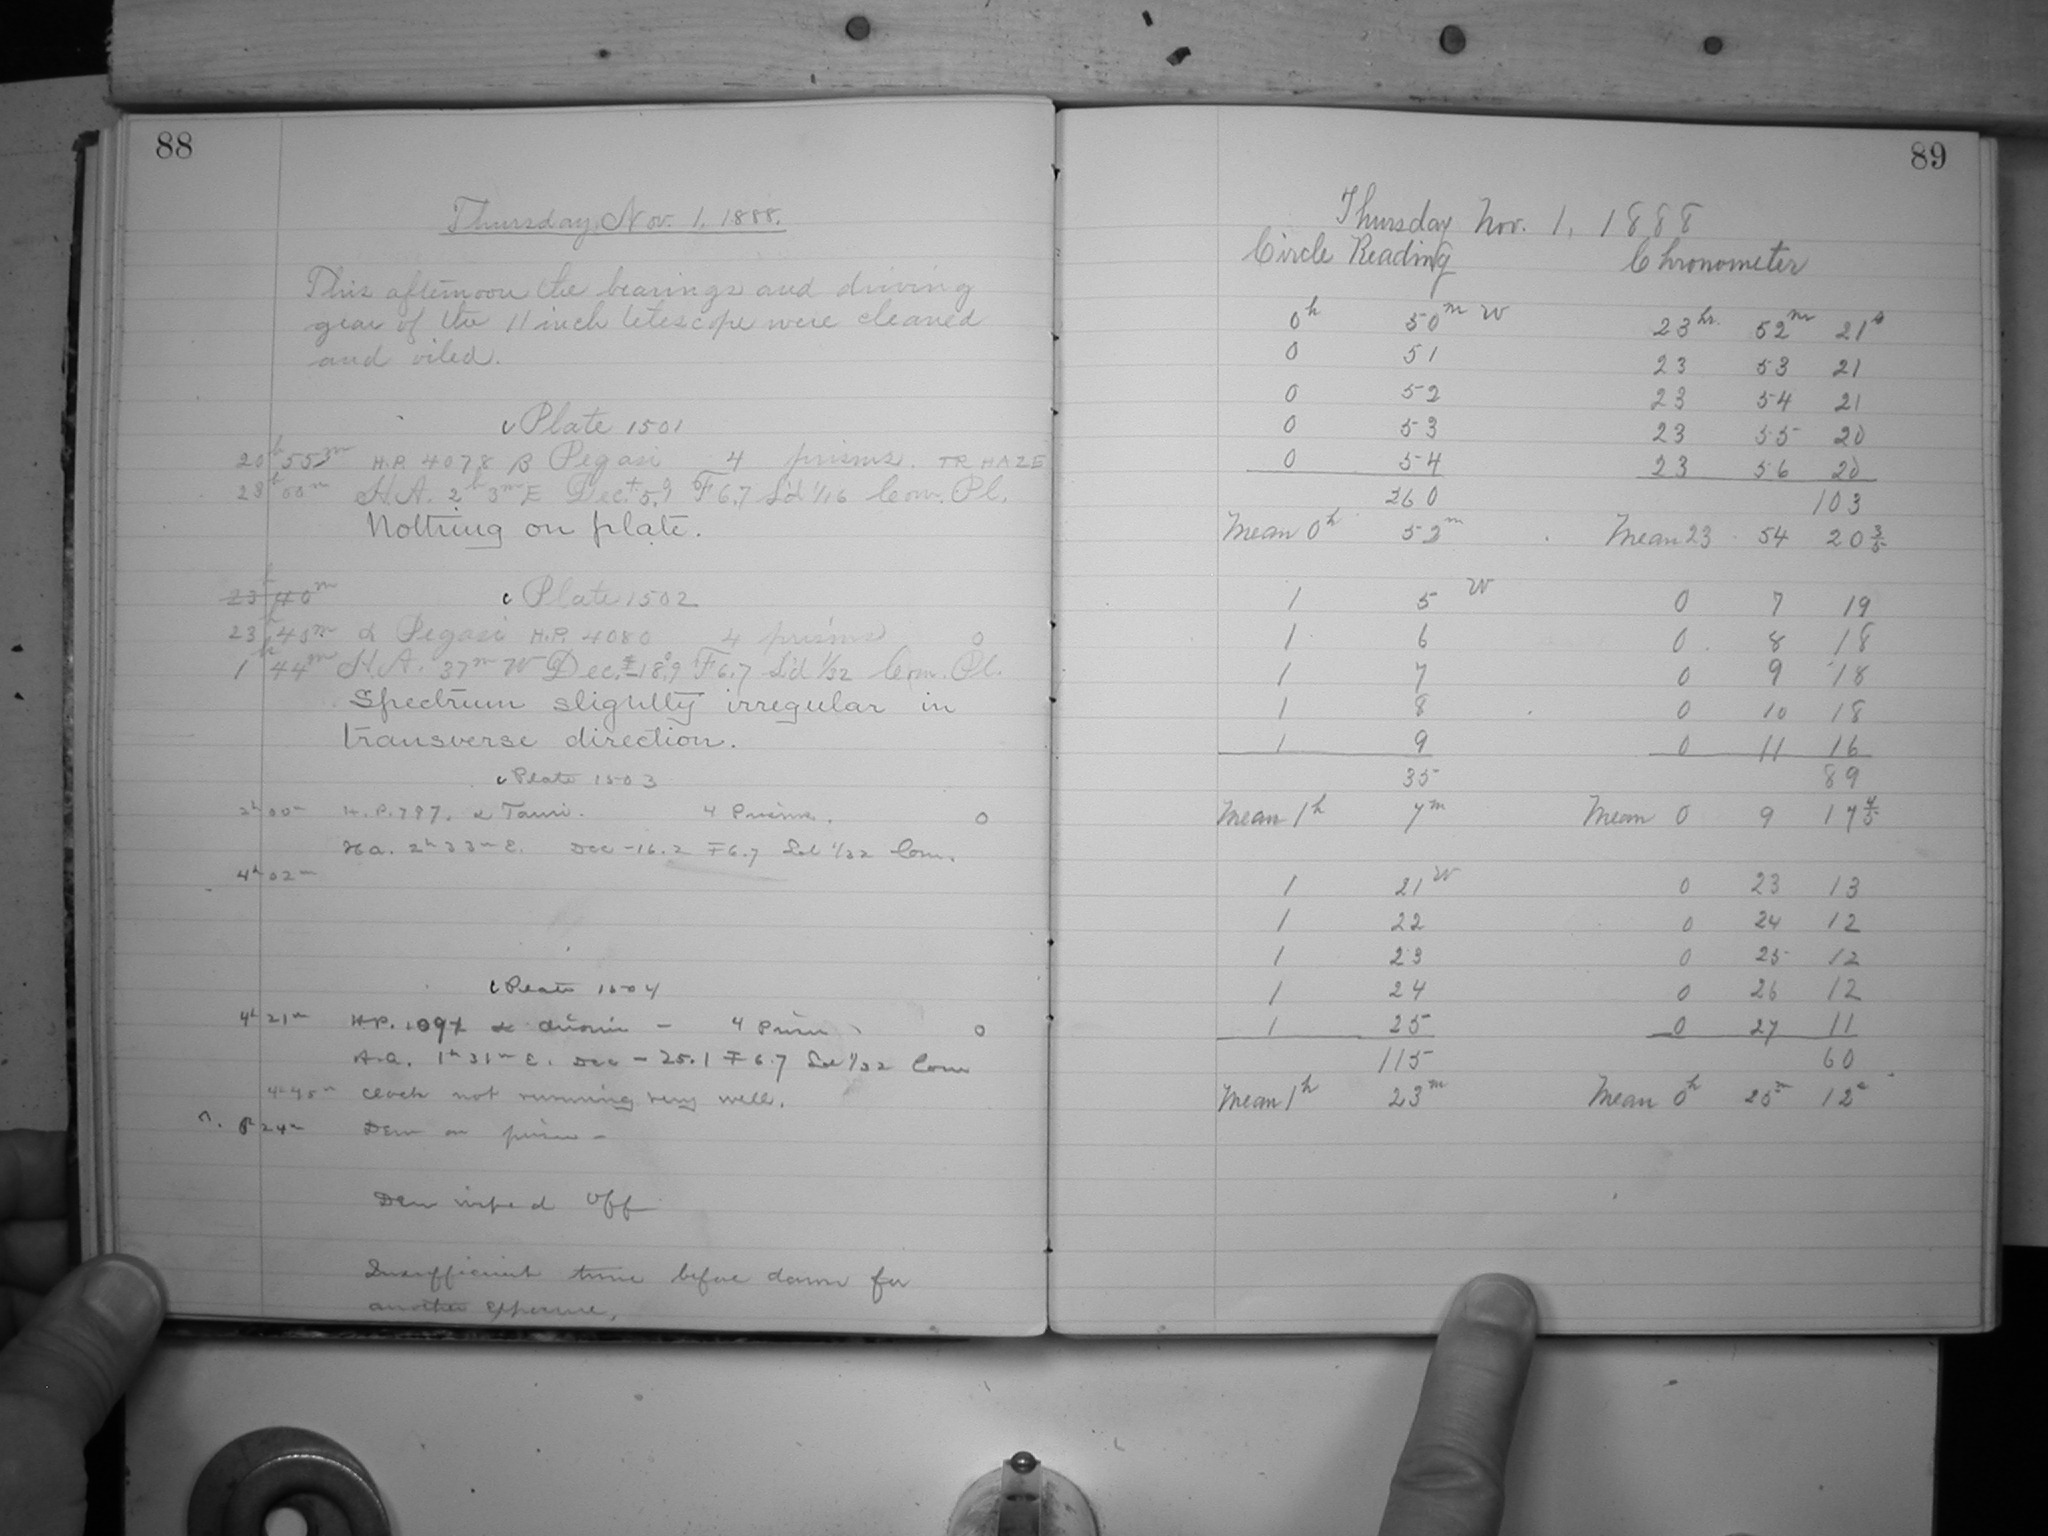 88
Thursday, Nov. 1, 1888.
This afternoon the bearings and driving
gear of the 11 inch telescope were cleaned
and oiled.
Plate 1501
20h 55m H.P. 4078 β Pegasi 4 prisms. TR HAZE
23h 00m H.A. 2h 3m E Dec. + 5.9 F 6.7 S'd 1/16 Com. Pl.
Nothing on plate.
23h 40m Plate 1502
23h 40m α Pegasi H.P. 4080 4 prisms 0
1h 44m H.A. 37m W Dec. -18.9 F 6.7 S'd 1/32 Com. Pl.
Spectrum slightly irregular in
transverse direction.
Plate 1503
2h 00m H.P. 797. α Tauri. 4 Prisms. 0
H.a. 2h 33m E. Dec -16.2 F 6.7 Sd 1/32 Com.
4h 02m
Plate 1504
4h 21m H.P. 1097 α Orionis - 4 Prisms 0
H.a. 1h 31m E. Dec - 25.1 F 6.7 Sd 1/32 Com
4h 45m Clock not running very well.
24m Dew on prism -
Dew wiped off
Insufficient time before dawn for
another exposure.
89
Thursday Nov. 1, 1888
Circle Reading Chronometer
0h 50m W 23hr. 52m 21s
0 51 23 53 21
0 52 23 54 21
0 53 23 55 20
0 54 23 56 20
260 103
Mean 0h 52m Mean 23 54 20 3/5
1 5 W 0 7 19
1 6 0 8 18
1 7 0 9 18
1 8 0 10 18
1 9 0 11 16
35 89
Mean 1h 7m Mean 0 9 17 4/5
1 21 W 0 23 13
1 22 0 24 12
1 23 0 25 12
1 24 0 26 12
1 25 0 27 11
115 60
Mean 1h 23m Mean 0h 25m 12s